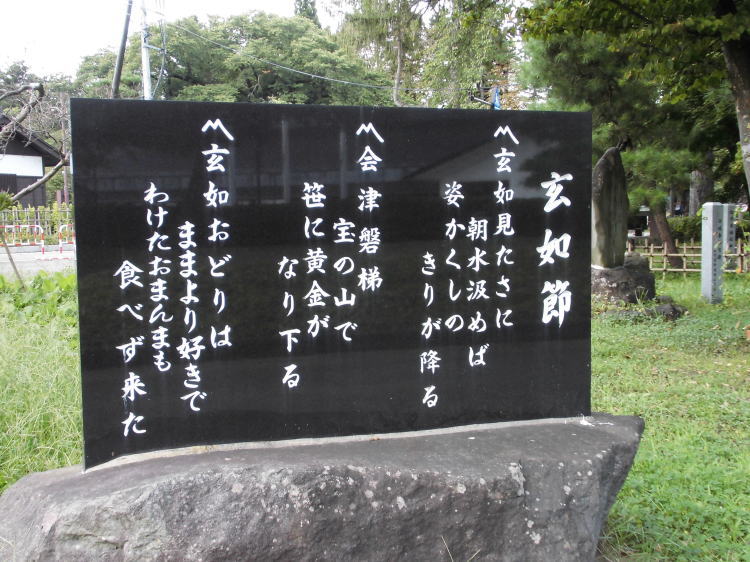 玄如節
〽玄如見たさに
朝水汲めば
姿かくしの
きりが降る
〽会津磐梯
宝の山で
笹に黄金が
なり下る
〽玄如おどりは
ままより好きで
わけたおまんまも
食べず来た